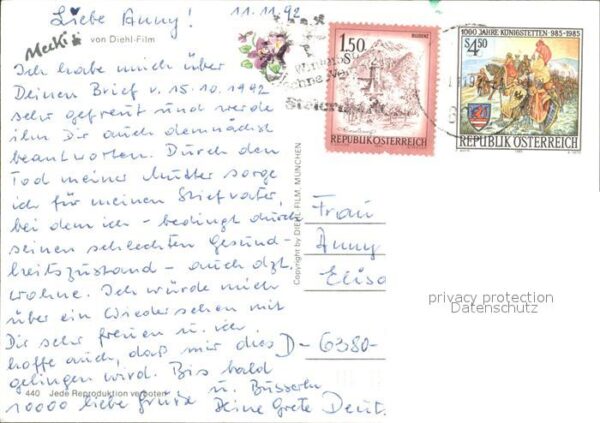 Liebe Anny!
11.11.92
Mecki
von Diehl-Film
Ich habe mich über
Deinen Brief v. 15.10.1992
sehr gefreut und werde
ihn Dir auch demnächst
beantworten. Durch den
Tod meiner Mutter sorge
ich für meinen Stiefvater,
bei dem ich - bedingt durch
seinen schlechten Gesund-
heitszustand - auch dzt.
wohne. Ich würde mich
über ein Wiedersehen mit
Dir sehr freuen u. ich
hoffe auch, daß mir dies
gelingen wird. Bis bald
10000 liebe Grüße u. Busserln
Deine Grete
440 Jede Reproduktion verboten
Copyright by DIEHL-FILM, MÜNCHEN
1.50
BLUDENZ
REPUBLIK ÖSTERREICH
1000 JAHRE KÖNIGSTETTEN 985-1985
S 4.50
REPUBLIK ÖSTERREICH
Frau
Anny
Elisa
D-6380-
privacy protection
Datenschutz